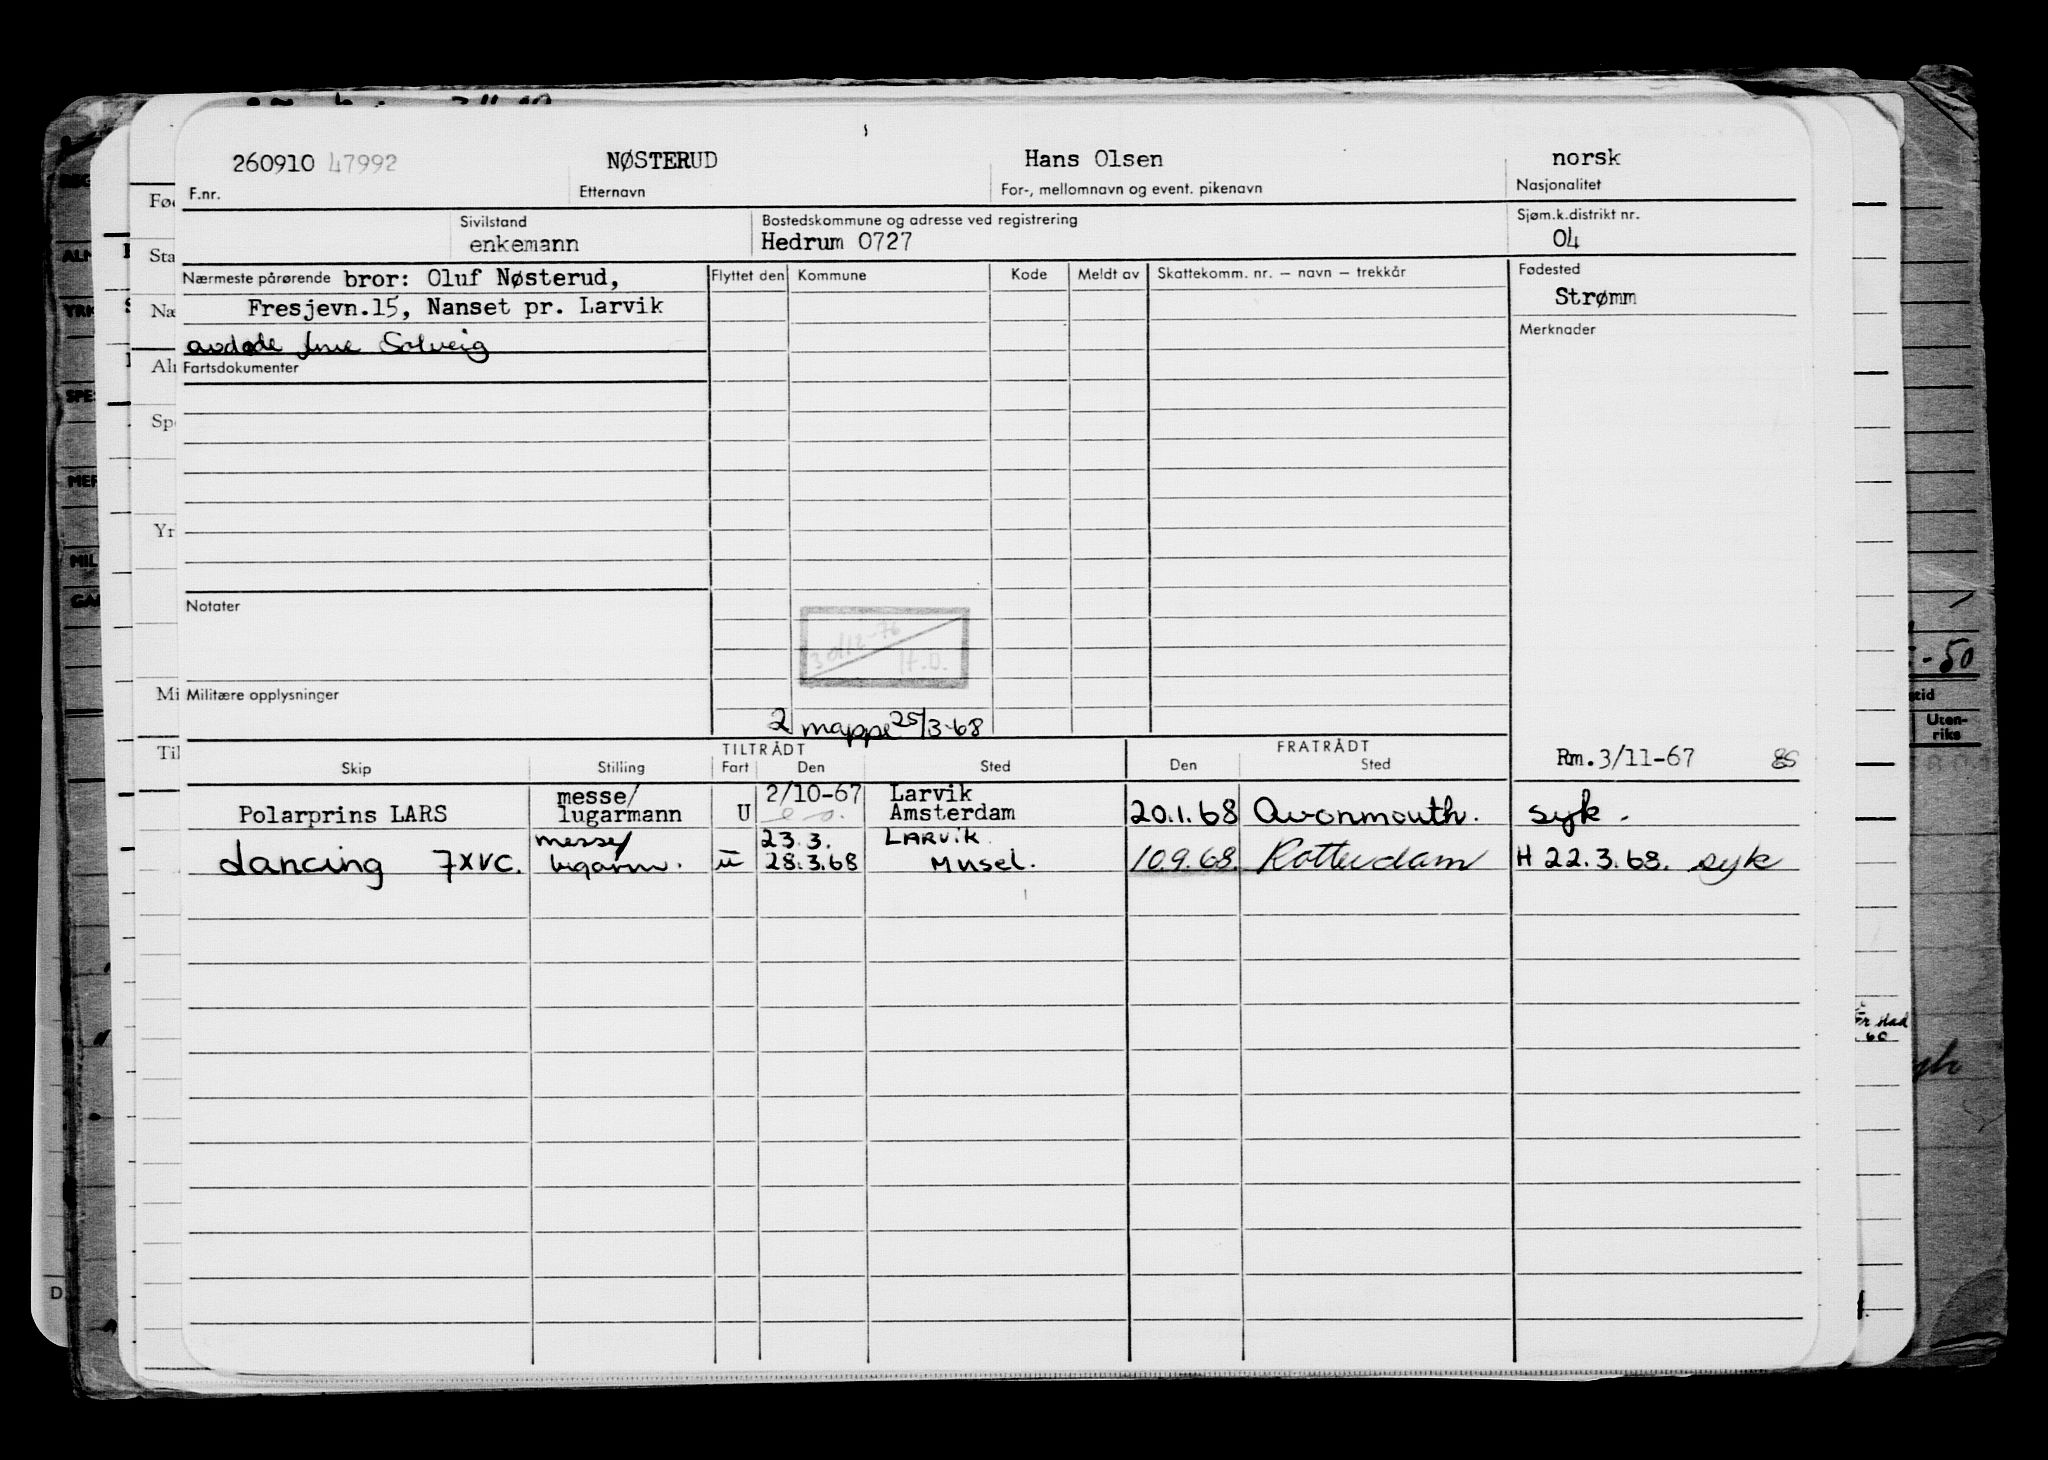 260910 47992 NØSTERUD Hans Olsen norsk
F.nr. Etternavn For-, mellomnavn og event. pikenavn Nasjonalitet
Sivilstand Bostedskommune og adresse ved registrering Sjøm.k.distrikt nr.
enkemann Hedrum 0727 04
Nærmeste pårørende bror: Oluf Nøsterud, Flyttet den Kommune Kode Meldt av Skattekomm. nr. – navn – trekkår Fødested
Fresjevn.15, Nanset pr. Larvik Strømm
avdøde Solveig Merknader
Fartsdokumenter
Notater
30/12-76
H.O.
Militære opplysninger
2 mappe 25/3-68
TILTRÅDT FRATRÅDT
Skip Stilling Fart Den Sted Den Sted Rm. 3/11-67
messe/ 2/10-67 Larvik
Polarprins LARS lugarmann U Amsterdam 20.1.68 Avonmouth. syk.
messe/ 23.3. LARVIK
dancing 7XVC. lugarm. U 28.3.68 Musel. 10.9.68. Rotterdam H 22.3.68. syk
Fød
Sta
Næ
Alm
Spe
Yr
Mi
Til
ALM
YRK
SPES
MER
MIL
GA
- 50
tid
Uten-
riks
D